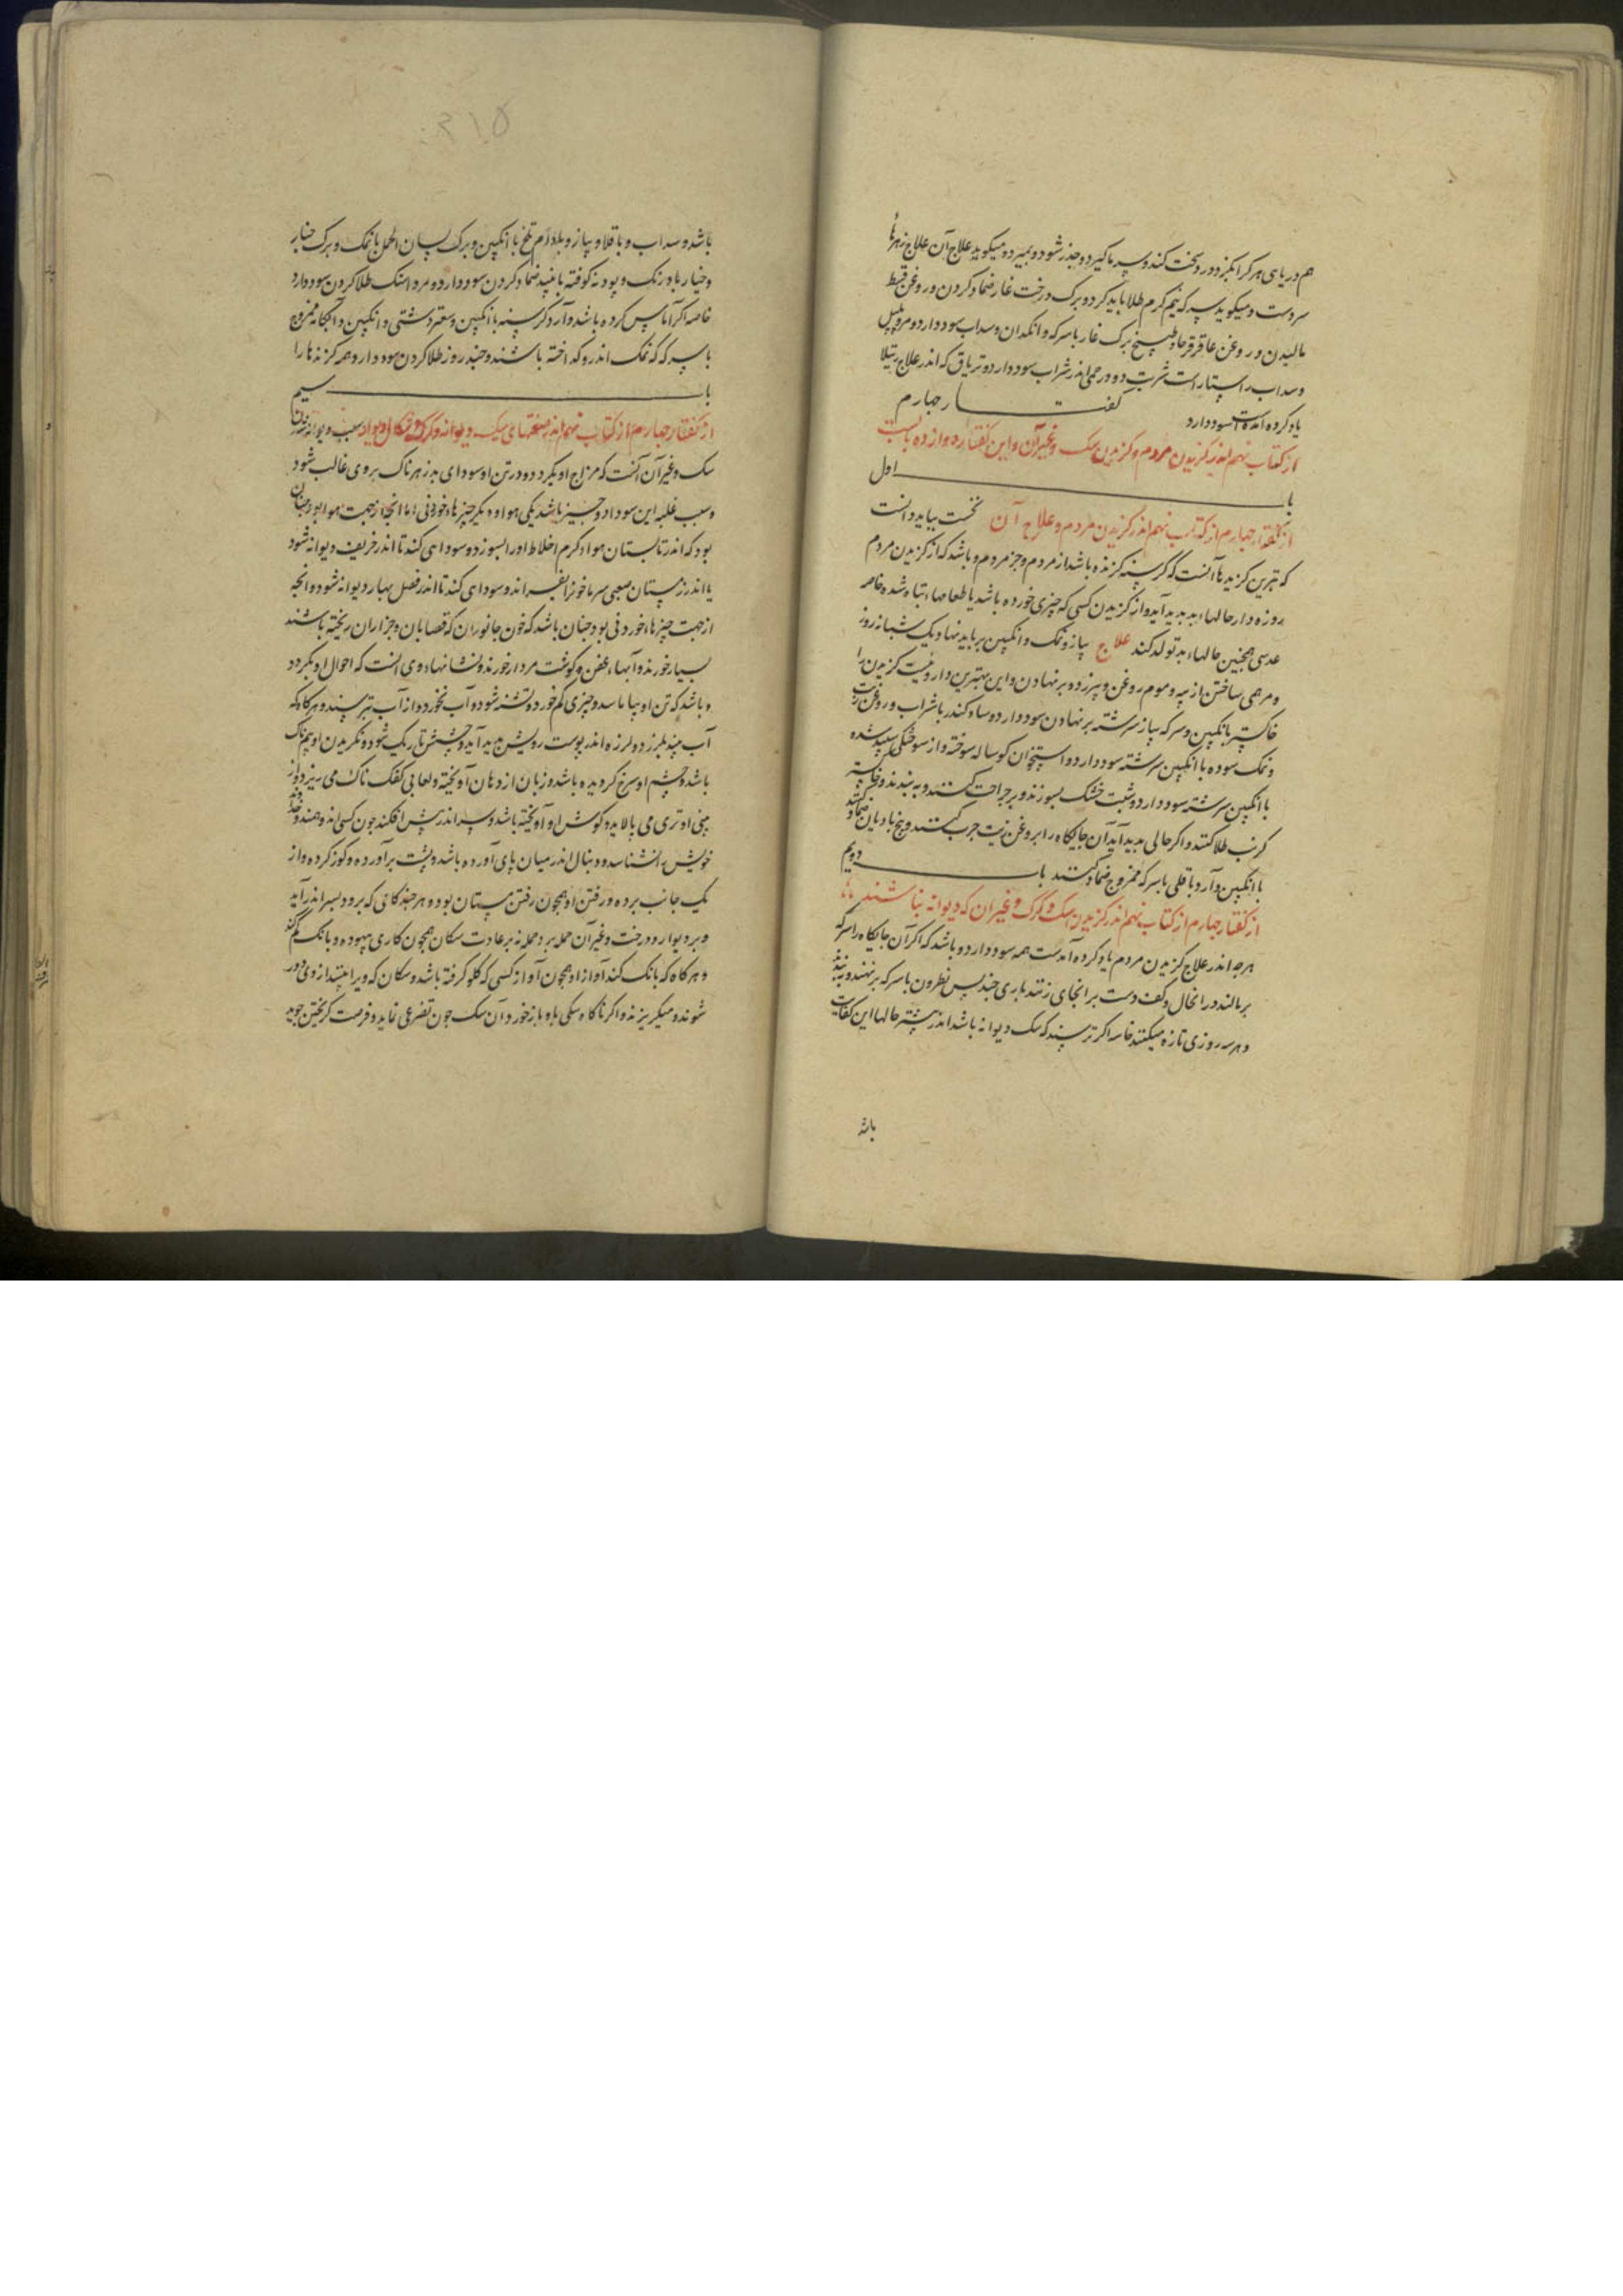 هم دریای هر کرا بکزد درد سخت کند و سپر ما کیرد و جذر شود و بمیرد و میکوید علاج آن علاج زهرها
سردست و میکوید سرکه نیم کرم طلا باید کرد و برک درخت غار ضماد کردن و روغن قسط
مالیدن و روغن عاقرقرحا و طبیخ برک غار با سرکه و انکدان و سداب سود دارد و مر و پلپل
و سداب راستاراست شربت دو درمی اندر شراب سود دارد و تریاق که اندر علاج رتیلا
یاد کرده آمده است سود دارد کفتار جهارم
از کتاب نهم اندر کزیدن مردم و کزیدن سک و غیر آن و این کفتار دوازده بابست
باب اول
از کفتار جهارم از کتاب نهم اندر کزیدن مردم و علاج آن نخست بباید دانست
که بترین کزیدها آنست که کرسنه کزنده باشد از مردم و جز مردم و باشد که از کزیدن مردم
روزه دار حالها بد پدید آید و از کزیدن کسی که چیزی خورده باشد یا طعامهاء تباه شده خاصه
عدسی همچنین حالهاء بد تولد کند علاج پیاز و نمک و انکبین بر باید نهاد یک شبانه روز
و مرهمی ساختن از پیه و موم و روغن و بیرزد و بر نهادن و این بهترین دارو نیست کزیدن را
خاکستر بانکبین و سرکه بیاز سرشته بر نهادن سود دارد و ساد کندر با شراب و روغن زیت
و نمک سوده با انکبین سرشته سود دارد و استخوان کوساله سوخته و از سوختکی سپید شده
با انکبین سرشته سود دارد و شبت خشک بسوزند و بر جراحت کنند و به بندند و خاکستر
کرنب طلا کنند و اکر حالی بد پدید آید آن جایکاه را بروغن زیت جرب کنند و بیخ بادیان ضماد کنند
با انکبین و آرد باقلی با سرکه ممزوج ضماد کنند باب دویم
از کفتار جهارم از کتاب نهم اندر کزیدن سک و کرک و غیر آن که دیوانه نباشند
هرجه اندر علاج کزیدن مردم یاد کرده آمدست همه سود دارد و باشد که اکر آن جایکاه را سرکه
بر مالند در انحال و کف دست بر انجای زنند باری جند پس نطرون با سرکه بر نهند و به بندند
و هر سه روزی تازه میکنند خاصه اکر ترسند که سک دیوانه باشد اندر بیشتر حالها این کفایت
باشد
باشد و سداب و باقلا و پیاز و بادام تلخ با انکبین و برک لسان الحمل با نمک و برک خیار
و خیار بادرنک و پودنه کوفته با نبید ضماد کردن سود دارد و مرداسنک طلا کردن سود دارد
خاصه اکر آماس کرده باشد و آرد کرسنه با انکبین و سعتر دشتی و انکبین و آبکامه ممزوج
با سرکه که نمک اندرو کداخته باشند و جند روز طلا کردن سود دارد همه کزندها را
باب سیم
از کفتار جهارم از کتاب نهم اندر صفتهای سک دیوانه و کرک و شکال دیوانه سبب دیوانه شدن
سک و غیر آن آنست که مزاج او بکردد و در تن او سودای بد زهرناک بر وی غالب شود
و سبب غلبه این سودا دو جیز باشد یکی هوا و دیکر چیزهاء خوردنی اما انجه از جهت هوا بود چنان
بود که اندر تابستان هواء کرم اخلاط او را بسوزد و سوداى کند تا اندر خریف دیوانه شود
یا اندر زمستان صعبی سرما خون را بفسراند و سودای کند تا اندر فصل بهار دیوانه شود و انجه
از جهت چیزهاء خوردنی بود جنان باشد که خون جانوران که قصابان و جزاران ریخته باشند
بسیار خورند و آبهاء عفن و کوشت مردار خورند و نشانهاء وی انست که احوال او بکردد
و باشد که تن او بیاماسد و جیزی کم خورد و تشنه شود و آب نخورد و از آب بترسند و هرکاه که
آب بیند بلرزد و لرزه اندر پوست رویش پدید آید و جشمش تاریک شود و نکریدن او بیم ناک
باشد و جشم او سرخ کردیده باشد و زبان از دهان آویخته و لعابی کفک ناک می ریزد و از
بینی او تری می پالاید و کوش او آویخته باشد و سر اندر پیش افکند جون کسی اندوهمند و خداوند
خویش را نشناسد و دنبال اندر میان پای آورده باشد و پشت برآورده و کوز کرده و از
یک جانب برده و رفتن او همچون رفتن مستان بود و هر جند کامی که برود بسر اندر آید
و بر دیوار و درخت و غیر آن حمله برد حمله نه بر عادت سکان همچون کاری بیهوده و بانک کم کند
و هرکاه که بانک کند آواز او همچون آواز کسی که کلو کرفته باشد و سکان که ویرا بینند از وی دور
شوند و میکریزند و اکر ناکاه سکی باو باز خورد آن سک جون تضرعی نماید و فرصت کریختن جوید